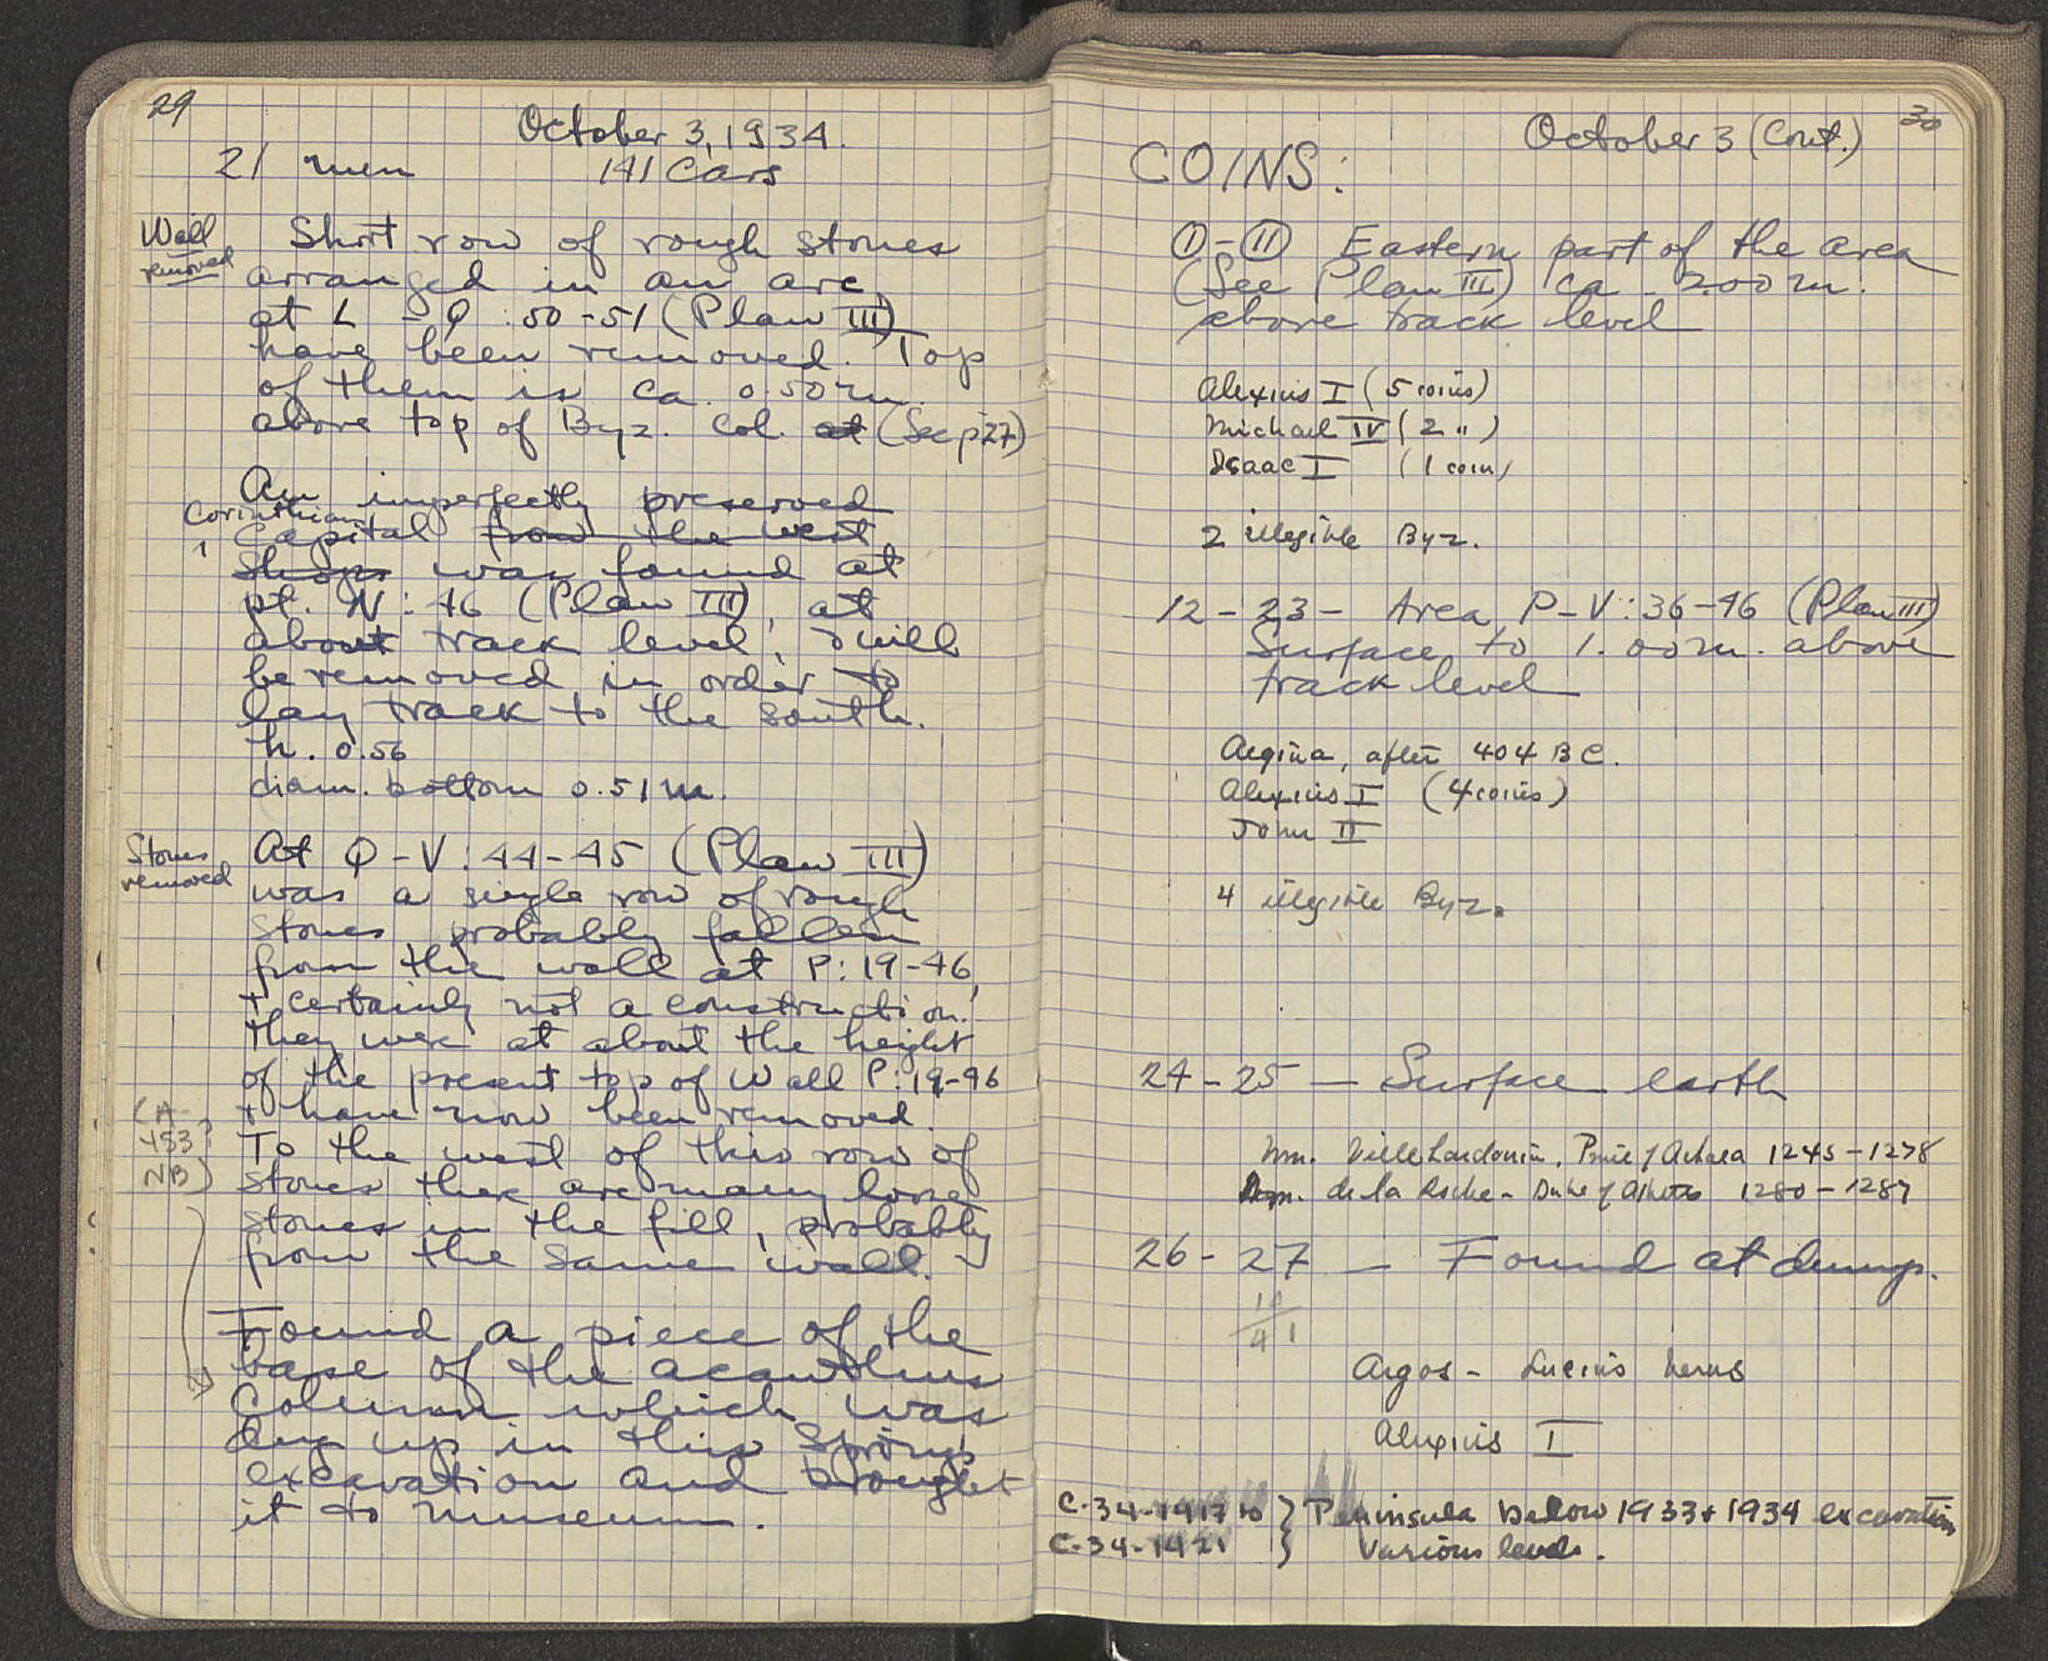 29
October 3, 1934.
21 men 141 Cars
Wall
removed
Short row of rough stones
arranged in an arc,
at L - Q : 50-51 (Plan III)
have been removed. Top
of them is ca. 0.50 m.
above top of Byz. Col. at (See p 27)
An imperfectly preserved
Corinthian
Capital from the west
shops was found at
pt. N : 46 (Plan III), at
about track level, & will
be removed in order to
lay track to the south.
h. 0.56
diam. bottom 0.51 m.
Stones
removed
At Q - V : 44-45 (Plan III)
was a single row of rough
stones probably fallen
from the wall at P: 19-46,
+ certainly not a construction.
They were at about the height
of the present top of Wall P: 19-46
+ have now been removed.
(A-
453?
NB)
To the west of this row of
stones there are many loose
stones in the fill, probably
from the same wall.
Found a piece of the
base of the acanthus
Column which was
dug up in this Spring's
excavation and brought
it to museum.
30
October 3 (Cont.)
COINS:
① - ⑪ Eastern part of the area
(See Plan III) ca. 2.00 m.
above track level
Alexius I (5 coins)
Michael IV (2 ")
Isaac I (1 coin)
2 illegible Byz.
12 - 23 - Area P - V : 36-46 (Plan III)
Surface to 1.00 m. above
track level
Aegina, after 404 BC.
Alexius I (4 coins)
John II
4 illegible Byz.
24 - 25 — Surface earth
Wm. Villehardouin, Prince of Achaea 1245 - 1278
Wm. de la Roche - Duke of Athens 1280 - 1287
26 - 27 — Found at dump.
41
Argos - Lucius Verus
Alexius I
C-34-1417 to } Peninsula below 1933 + 1934 excavation
C-34-1421 } Various levels.